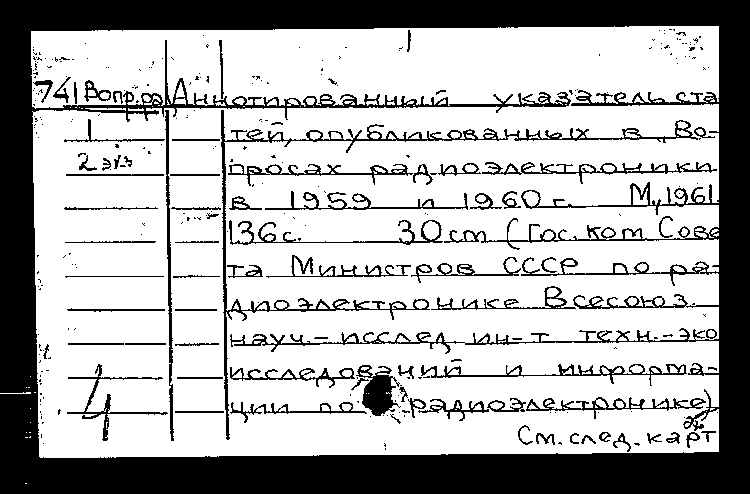 741 Вопр.ра Аннотированный указатель ста
1 тей, опубликованных в „Во-
2 экз просах радиоэлектроники
в 1959 и 1960 г. М., 1961.
136 с. 30 cm (Гос. ком Сове
та Министров СССР по ра-
диоэлектронике Всесоюз.
науч.- исслед. ин-т техн.-эко
исследований и информа-
4 ции по радиоэлектронике)
См. след. карт